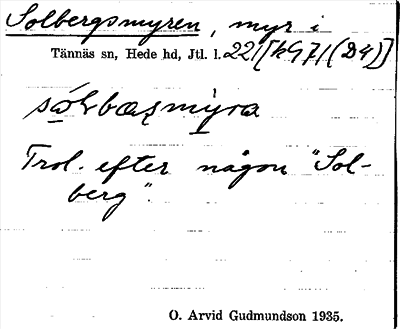 Solbergsmyren, myr i
Tännäs sn, Hede hd, Jtl. l. 221 [k971 (D4)]
Trol. efter någon "Sol-
berg".
O. Arvid Gudmundson 1935.